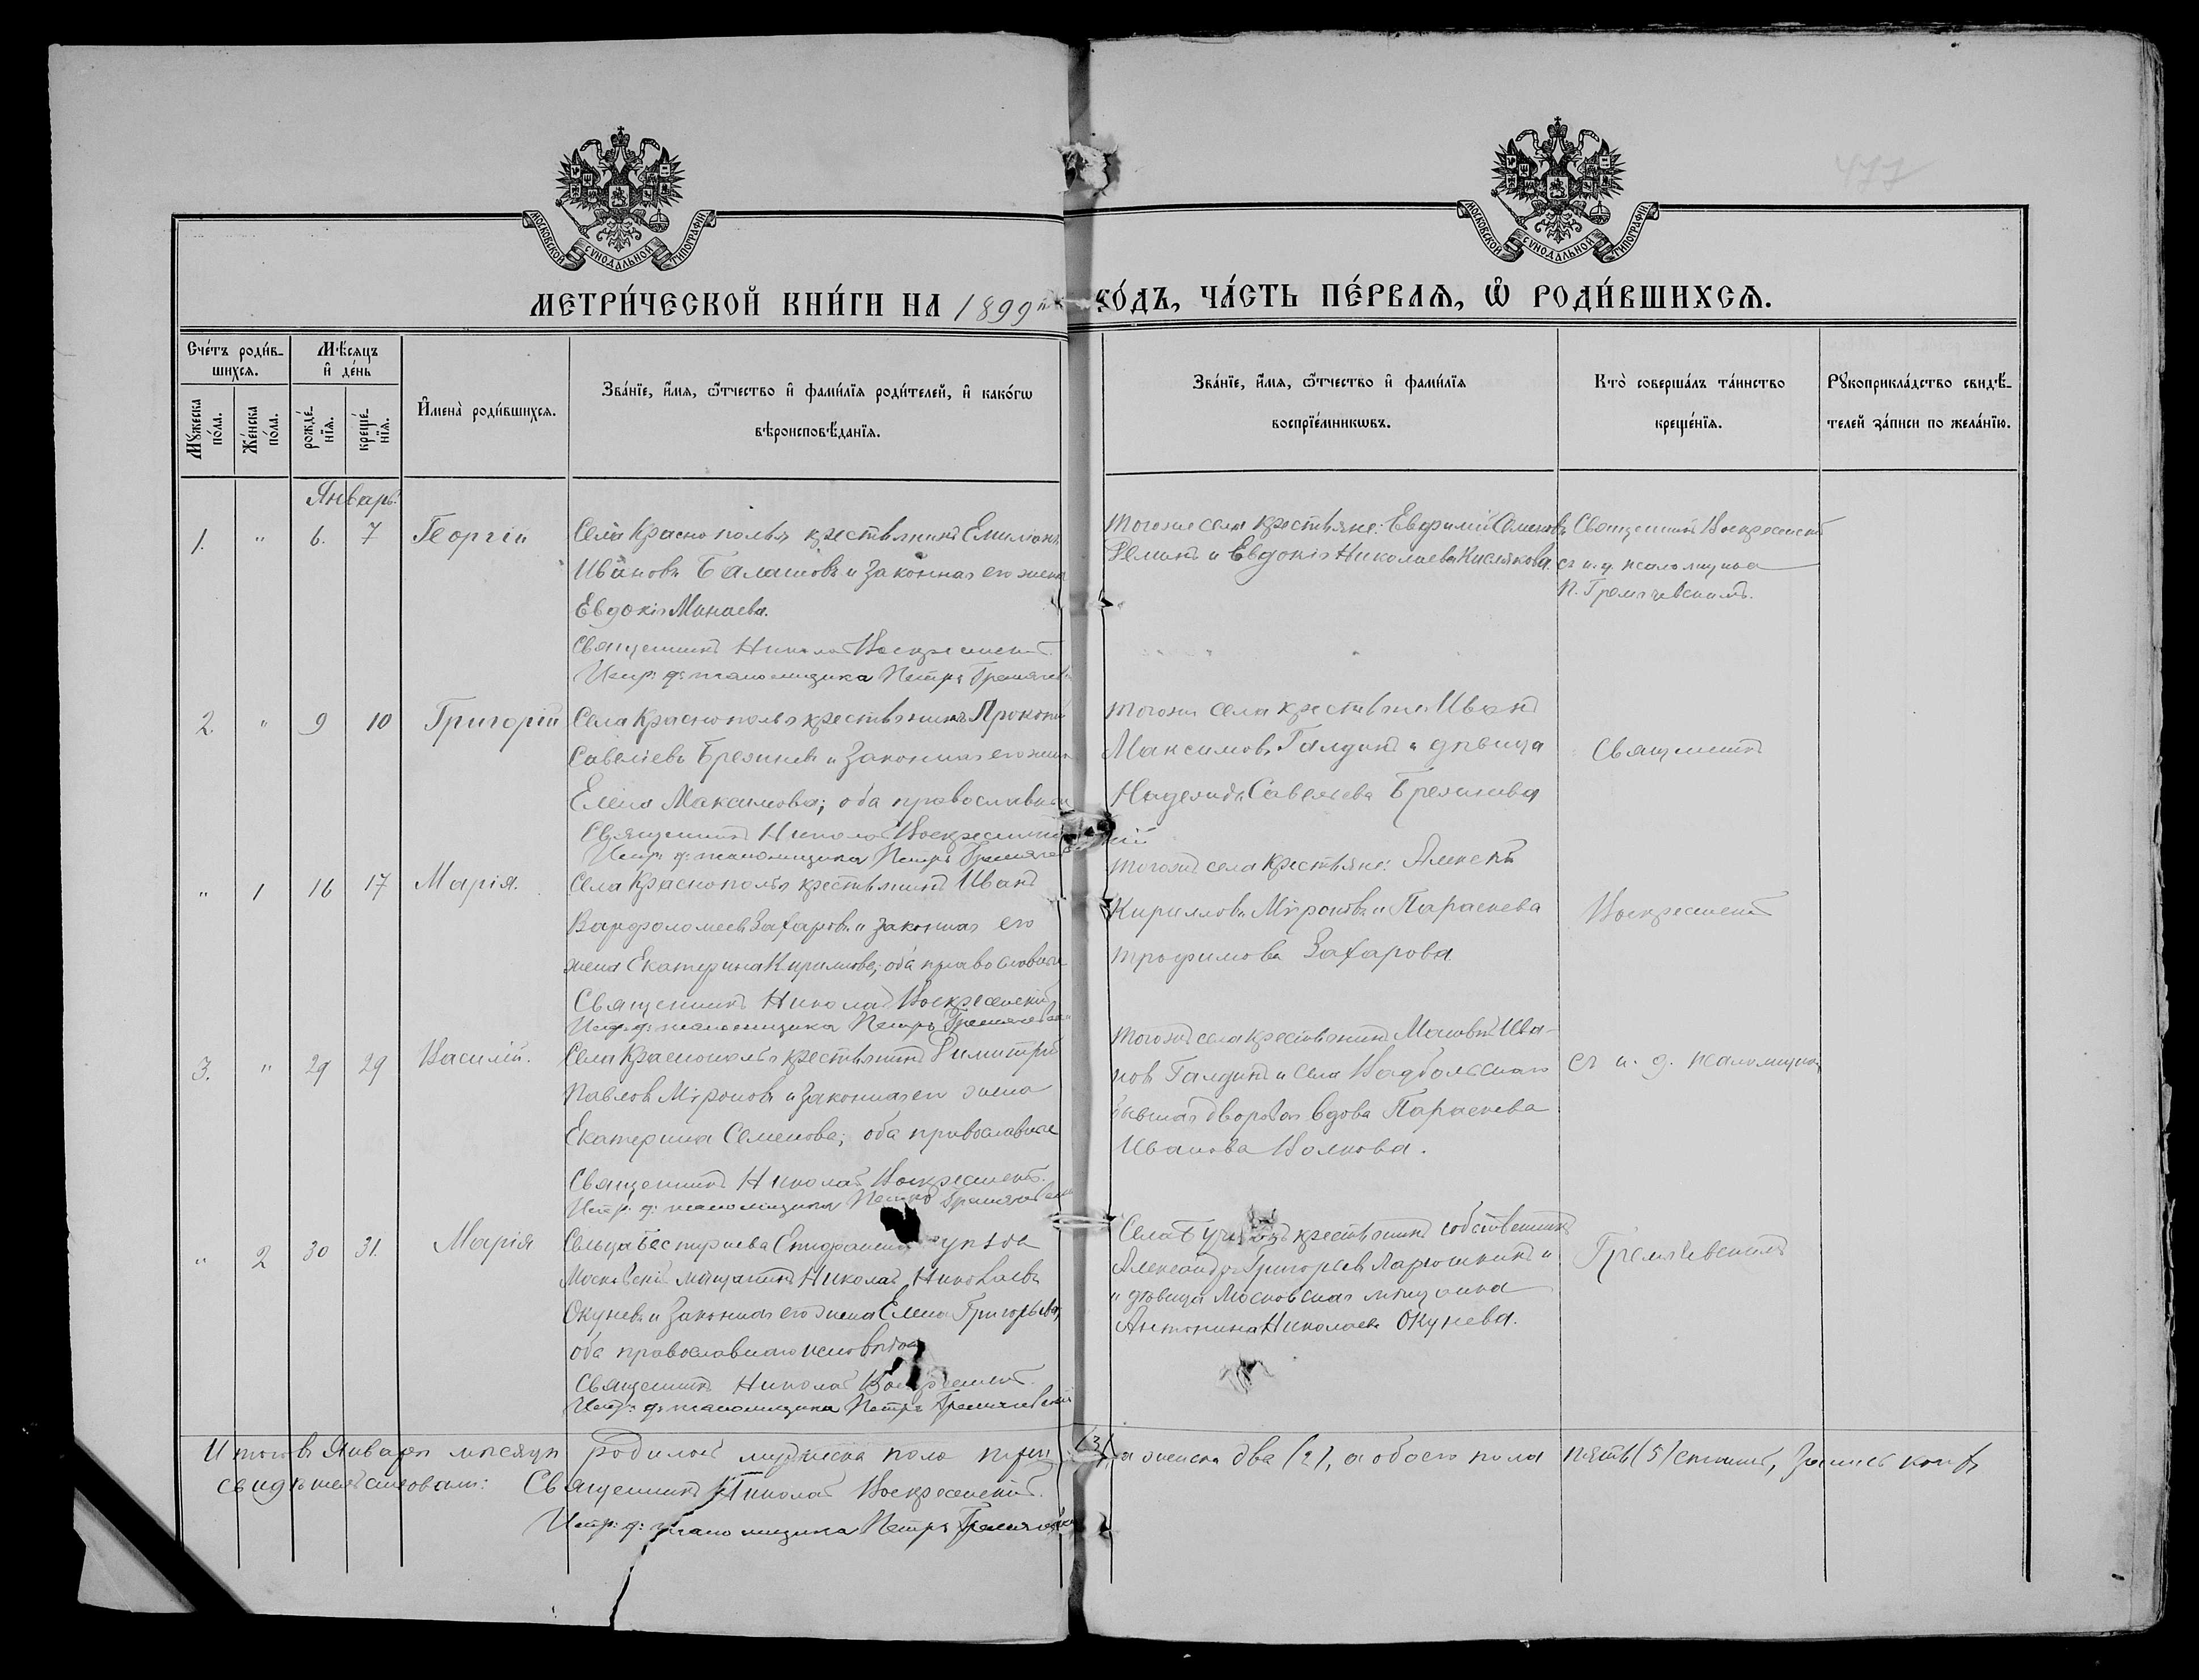 477
МОСКОВСКОЙ СѴНОДАЛЬНОЙ ТИПОГРАФІИ
МОСКОВСКОЙ СѴНОДАЛЬНОЙ ТИПОГРАФІИ
МЕТРИ́ЧЕСКОЙ КНИ́ГИ НА 1899й ГО́ДЪ, ЧА́СТЬ ПЕ́РВАѦ, Ѡ҆ РОДИ́ВШИХСѦ.
Сче́тъ роди́в-
шихсѧ.
Мꙋжеска по́ла.
Же́нска по́ла.
Мѣ́сѧцъ
и҆ де́нь
рожде́-
нїѧ.
креще́-
нїѧ.
И҆мена̀ роди́вшихсѧ.
Зва́нїе, и҆́мѧ, ѻ҆́тчество и҆ фами́лїѧ роди́телей, и҆ како́гѡ
вѣроисповѣ́данїѧ.
Зва́нїе, и҆́мѧ, ѻ҆́тчество и҆ фами́лїѧ
воспрїе́мникѡвъ.
Кто̀ соверша́лъ та́инство
креще́нїѧ.
Рꙋкоприкла́дство свидѣ́-
телей за́писи по жела́нїю.
Январь.
1. " 6. 7 Георгій
Села Краснополья крестьянинъ Емиліанъ
Ивановъ Балашовъ и законная его жена
Евдокія Минаева.
Священникъ Николай Воскресенскій.
Испр. д. псаломщика Петръ Гремячевскій
Тогоже села крестьяне: Евфимій Семеновъ
и Евдокія Николаева Кислякова.
Священникъ Воскресенскій
съ и. д. псаломщика
П. Гремячевскимъ.
2. " 9 10 Григорій
Села Краснополья крестьянинъ Прокопій
Савеліевъ Брезгинъ и законная его жена
Елена Максимова; оба православные
Священникъ Николай Воскресенскій
Испр. д. псаломщика Петръ Гремячевскій
Тогоже села крестьяне Иванъ
Максимовъ Галдинъ и дѣвица
Надежда Савельева
Священникъ
" 1 16 17 Марія.
Села Краснополья крестьянинъ Иванъ
Варфоломеевъ Захаровъ и законная его
жена Екатерина Кириллова; оба православные
Священникъ Николай Воскресенскій
Испр. д. псаломщика Петръ Гремячевскій
Тогоже села крестьяне: Алексѣй
Кирилловъ Мѵроновъ и Параскева
Трофимова Захарова.
Воскресенскій
3. " 29 29 Василій.
Села Краснополья крестьянинъ Димитрій
Павловъ Мѵроновъ и законная его жена
Екатерина Семенова; оба православные
Священникъ Николай Воскресенскій.
Испр. д. псаломщика Петръ Гремячевскій
Тогоже села крестьянинъ Матвѣй Ива-
новъ Галдинъ и села Вадбольскаго
бывшая дворовая вдова Параскева
Иванова Волкова.
съ и. д. псаломщика
" 2 30 31. Марія
Сельца
Московскій мѣщанинъ Николай Николаевъ
Окуневъ и законная его жена Елена Григорьева,
оба православнаго исповѣданія
Священникъ Николай Воскресенскій.
Испр. д. псаломщика Петръ Гремячевскій
Села крестьянинъ собственникъ
Александръ Григорьевъ Ларюшкинъ и
и дѣвица Московская мѣщанка
Антонина Николаева Окунева.
Гремячевскимъ
Итого въ Январѣ мѣсяцѣ родилось мужеска пола три (3), а женска два (2), а обоего пола пять (5)
свидѣтельствовали: Священникъ Николай Воскресенскій.
Испр. д. псаломщика Петръ Гремячевскій